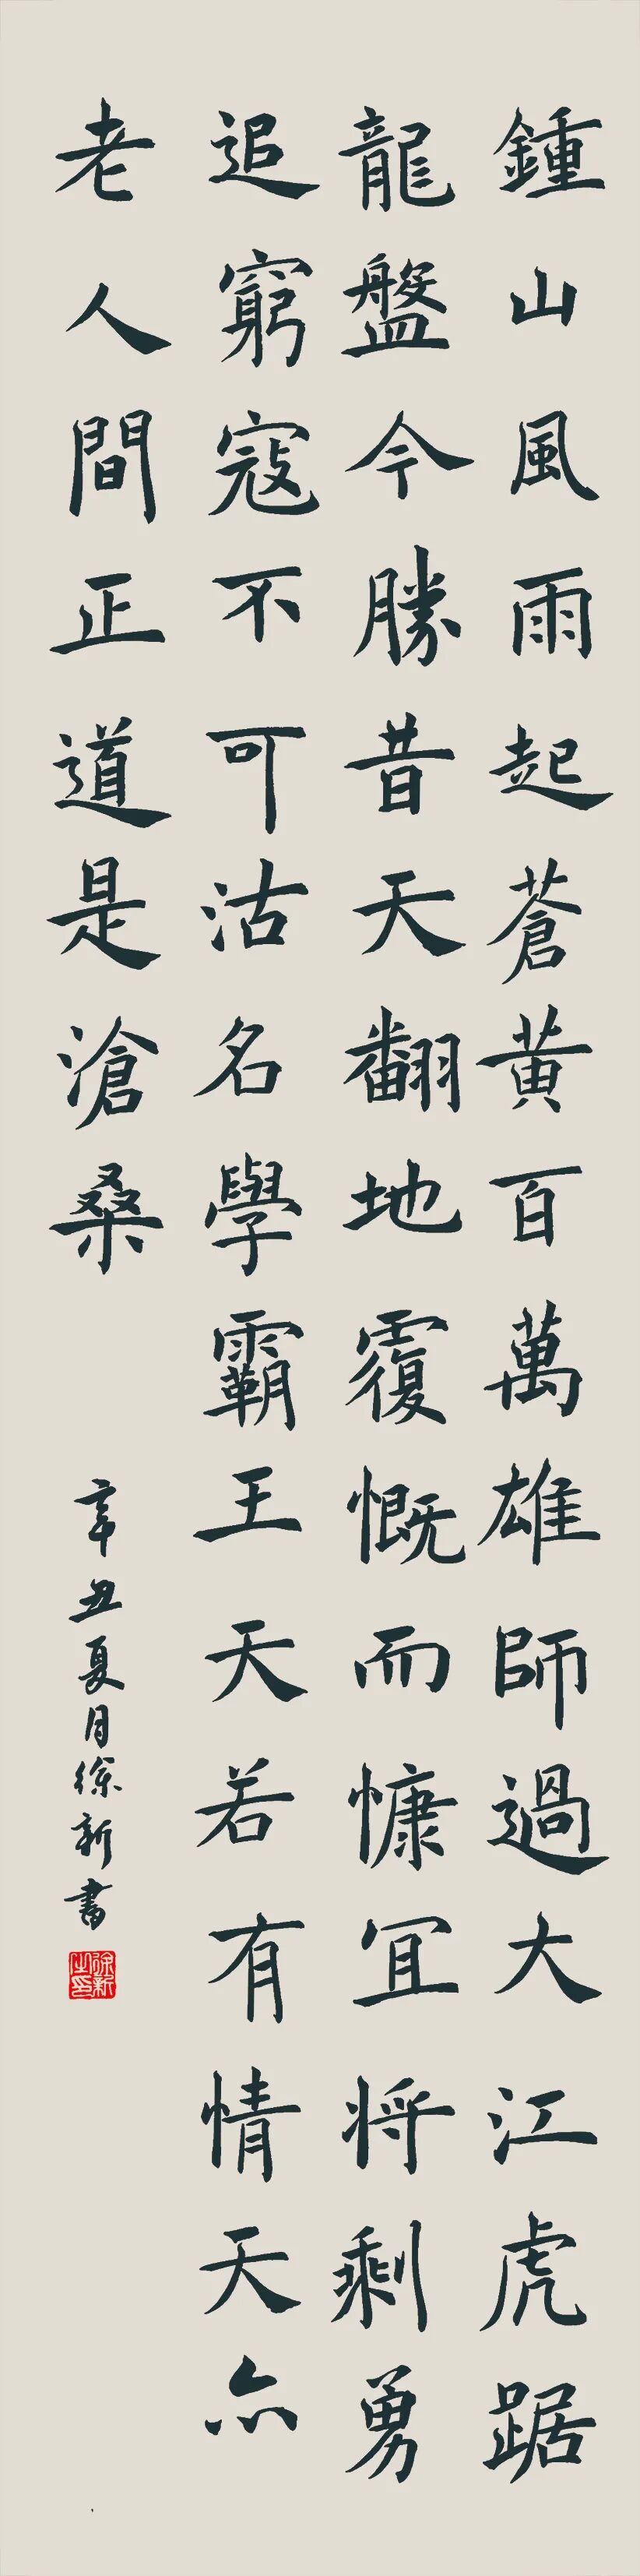 鍾山風雨起蒼黃百萬雄師過大江虎踞
龍盤今勝昔天翻地覆慨而慷宜将剩勇
追窮寇不可沽名學霸王天若有情天亦
老人間正道是滄桑
辛丑夏月徐新書
徐新之印